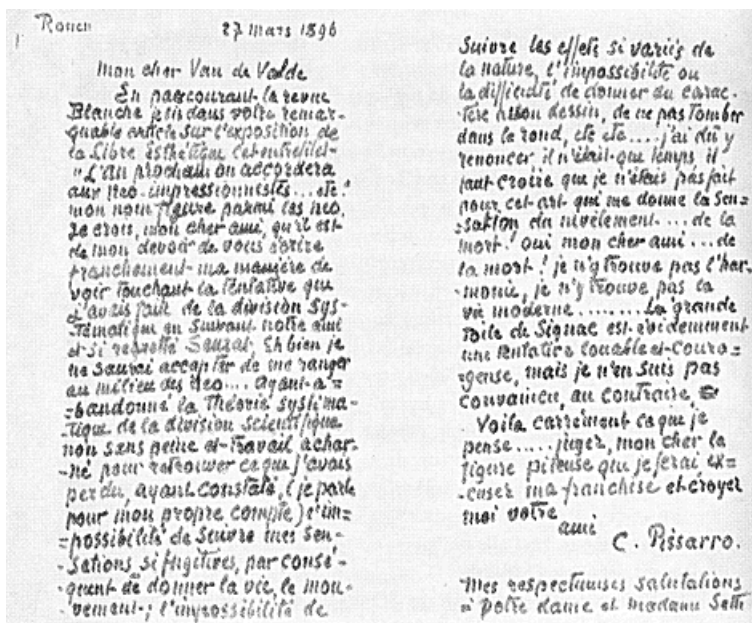 Rouen
27 mars 1896
mon cher Van de Velde
En parcourant la revue
Blanche je lis dans votre remar-
quable article sur l'exposition de
la Libre Esthétique cet entrefilet
"L'an prochain on accordera
aux neo-impressionnistes... etc!
mon nom figure parmi les neo.
Je crois, mon cher ami, qu'il est
de mon devoir de vous écrire
franchement ma manière de
voir touchant la tentative que
j'avais faite de la division sys-
tématique en suivant notre ami
et si regretté Seurat, Eh bien je
ne saurai accepter de me ranger
au milieu des neo.... ayant a=
=bandonné la théorie systéma-
-tique de la division scientifique
non sans peine et travail achar-
-né pour retrouver ce que j'avais
perdu, ayant constaté, (je parle
pour mon propre compte) l'im=
=possibilité de suivre mes sen-
-sations si fugitives, par consé-
-quent de donner la vie, le mou-
-vement; l'impossibilité de
Suivre les effets si variés de
la nature, l'impossibilité ou
la difficulté de donner du carac-
tère à son dessin, de ne pas tomber
dans le rond, etc etc.... j'ai dû y
renoncer il n'était que temps, il
faut croire que je n'étais pas fait
pour cet art qui me donne la sen=
=sation du nivelement.... de la
mort! oui mon cher ami... de
la mort! je n'y trouve pas l'har-
monie, je n'y trouve pas la
vie moderne......... La grande
toile de Signac est évidemment
une tentative louable et coura-
-geuse, mais je n'en suis pas
convaincu, au contraire
Voila carrément ce que je
pense..... jugez, mon cher la
figure piteuse que je ferai ex=
-cusez ma franchise et croyez
moi votre
ami
C. Pissarro.
Mes respectueuses salutations
à votre dame et madame Sethe